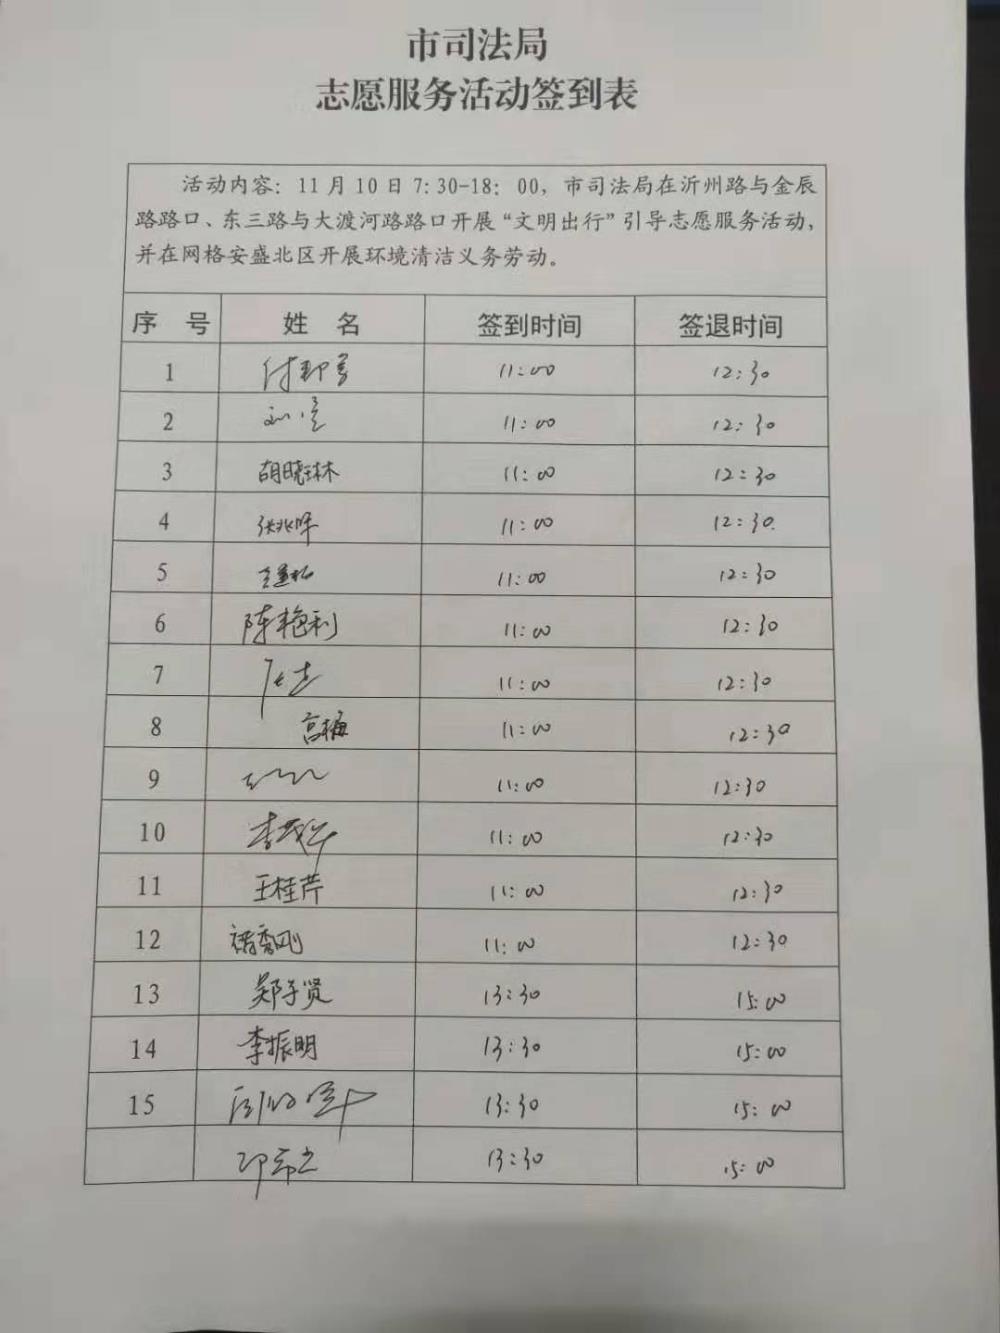 市司法局
志愿服务活动签到表
活动内容：11月10日7:30-18：00，市司法局在沂州路与金辰
路路口、东三路与大渡河路路口开展“文明出行”引导志愿服务活动，
并在网格安盛北区开展环境清洁义务劳动。
序 号 姓 名 签到时间 签退时间
1 11:00 12:30
2 11:00 12:30
3 胡晓琳 11:00 12:30
4 11:00 12:30
5 11:00 12:30
6 陈艳利 11:00 12:30
7 11:00 12:30
8 高梅 11:00 12:30
9 11:00 12:30
10 11:00 12:30
11 王桂芹 11:00 12:30
12 11:00 12:30
13 郑子贤 13:30 15:00
14 李振明 13:30 15:00
15 13:30 15:00
13:30 15:00